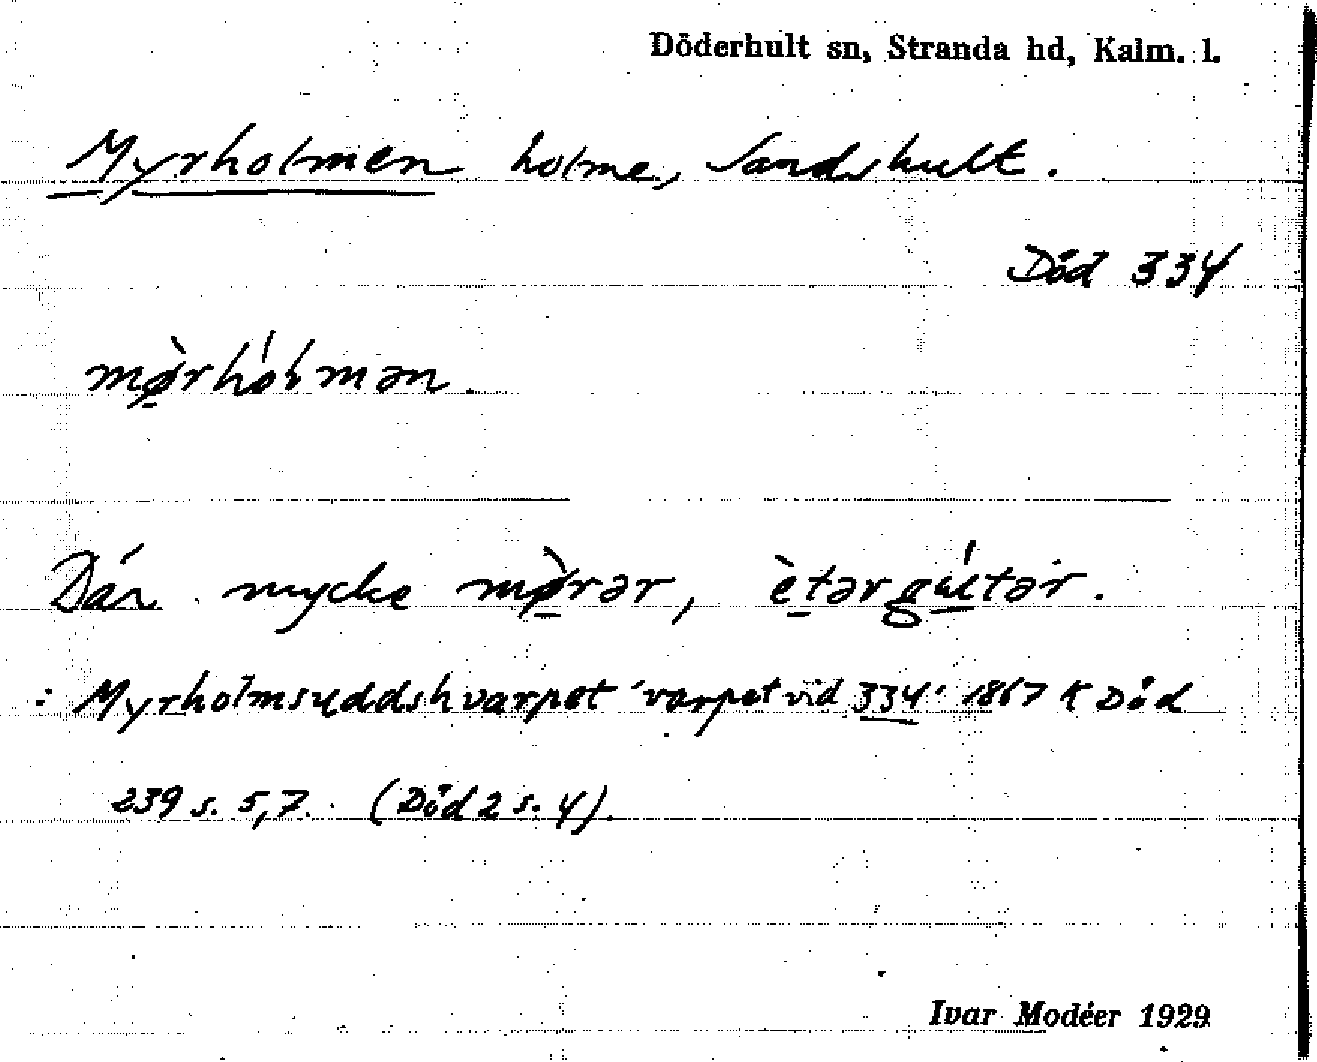 Döderhult sn, Stranda hd, Kalm. l.
Myrholmen holme, Sandshult.
Död 334
mø̀rhólmən.
Där mycke mø̀rər, ètərgúltər.
: Myrholmsuddshvarpet 'varpet vid 334' 1867 K Död
239 s. 5,7. (Död 2 s. 4).
Ivar Modéer 1929